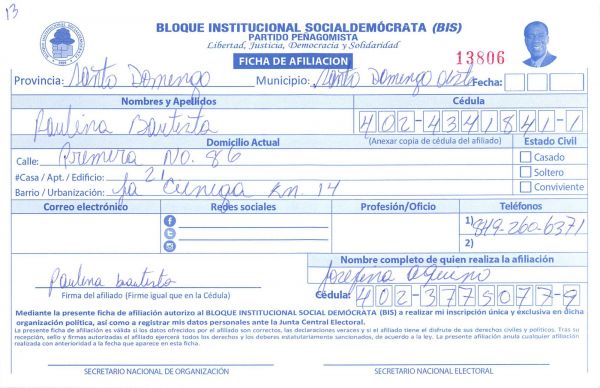 13
BLOQUE INSTITUCIONAL SOCIALDEMÓCRATA (BIS)
PARTIDO PEÑAGOMISTA
Libertad, Justicia, Democracia y Solidaridad
FICHA DE AFILIACIÓN
13806
Provincia: Santo Domingo Municipio: Santo Domingo Oeste Fecha:
Nombres y Apellidos Cédula
Paulina Bautista 402-4341841-1
(Anexar copia de cédula del afiliado)
Domicilio Actual Estado Civil
Calle: Primera No. 86 Casado
#Casa / Apt. / Edificio: 21 Soltero
Barrio / Urbanización: La Cienega Km. 14 Conviviente
Correo electrónico Redes sociales Profesión/Oficio Teléfonos
1) 849-260-6371
2)
Nombre completo de quien realiza la afiliación
Paulina bautista Josefina Aquino
Firma del afiliado (Firme igual que en la Cédula) Cédula: 402-3775077-9
Mediante la presente ficha de afiliación autorizo al BLOQUE INSTITUCIONAL SOCIAL DEMÓCRATA (BIS) a realizar mi inscripción única y exclusiva en dicha
organización política, así como a registrar mis datos personales ante la Junta Central Electoral.
La presente ficha de afiliación es válida si los datos ofrecidos por el afiliado son correctos, las declaraciones veraces y si el afiliado tiene el disfrute de sus derechos civiles y políticos. Tras su
recepción, sello y firmas autorizadas el ejercerá todos los derechos y los deberes estatutariamente sancionados, de acuerdo a la ley. La presente afiliación anula cualquier afiliación
realizada con anterioridad a la fecha que aparece en esta ficha.
SECRETARIO NACIONAL DE ORGANIZACIÓN SECRETARIO NACIONAL ELECTORAL